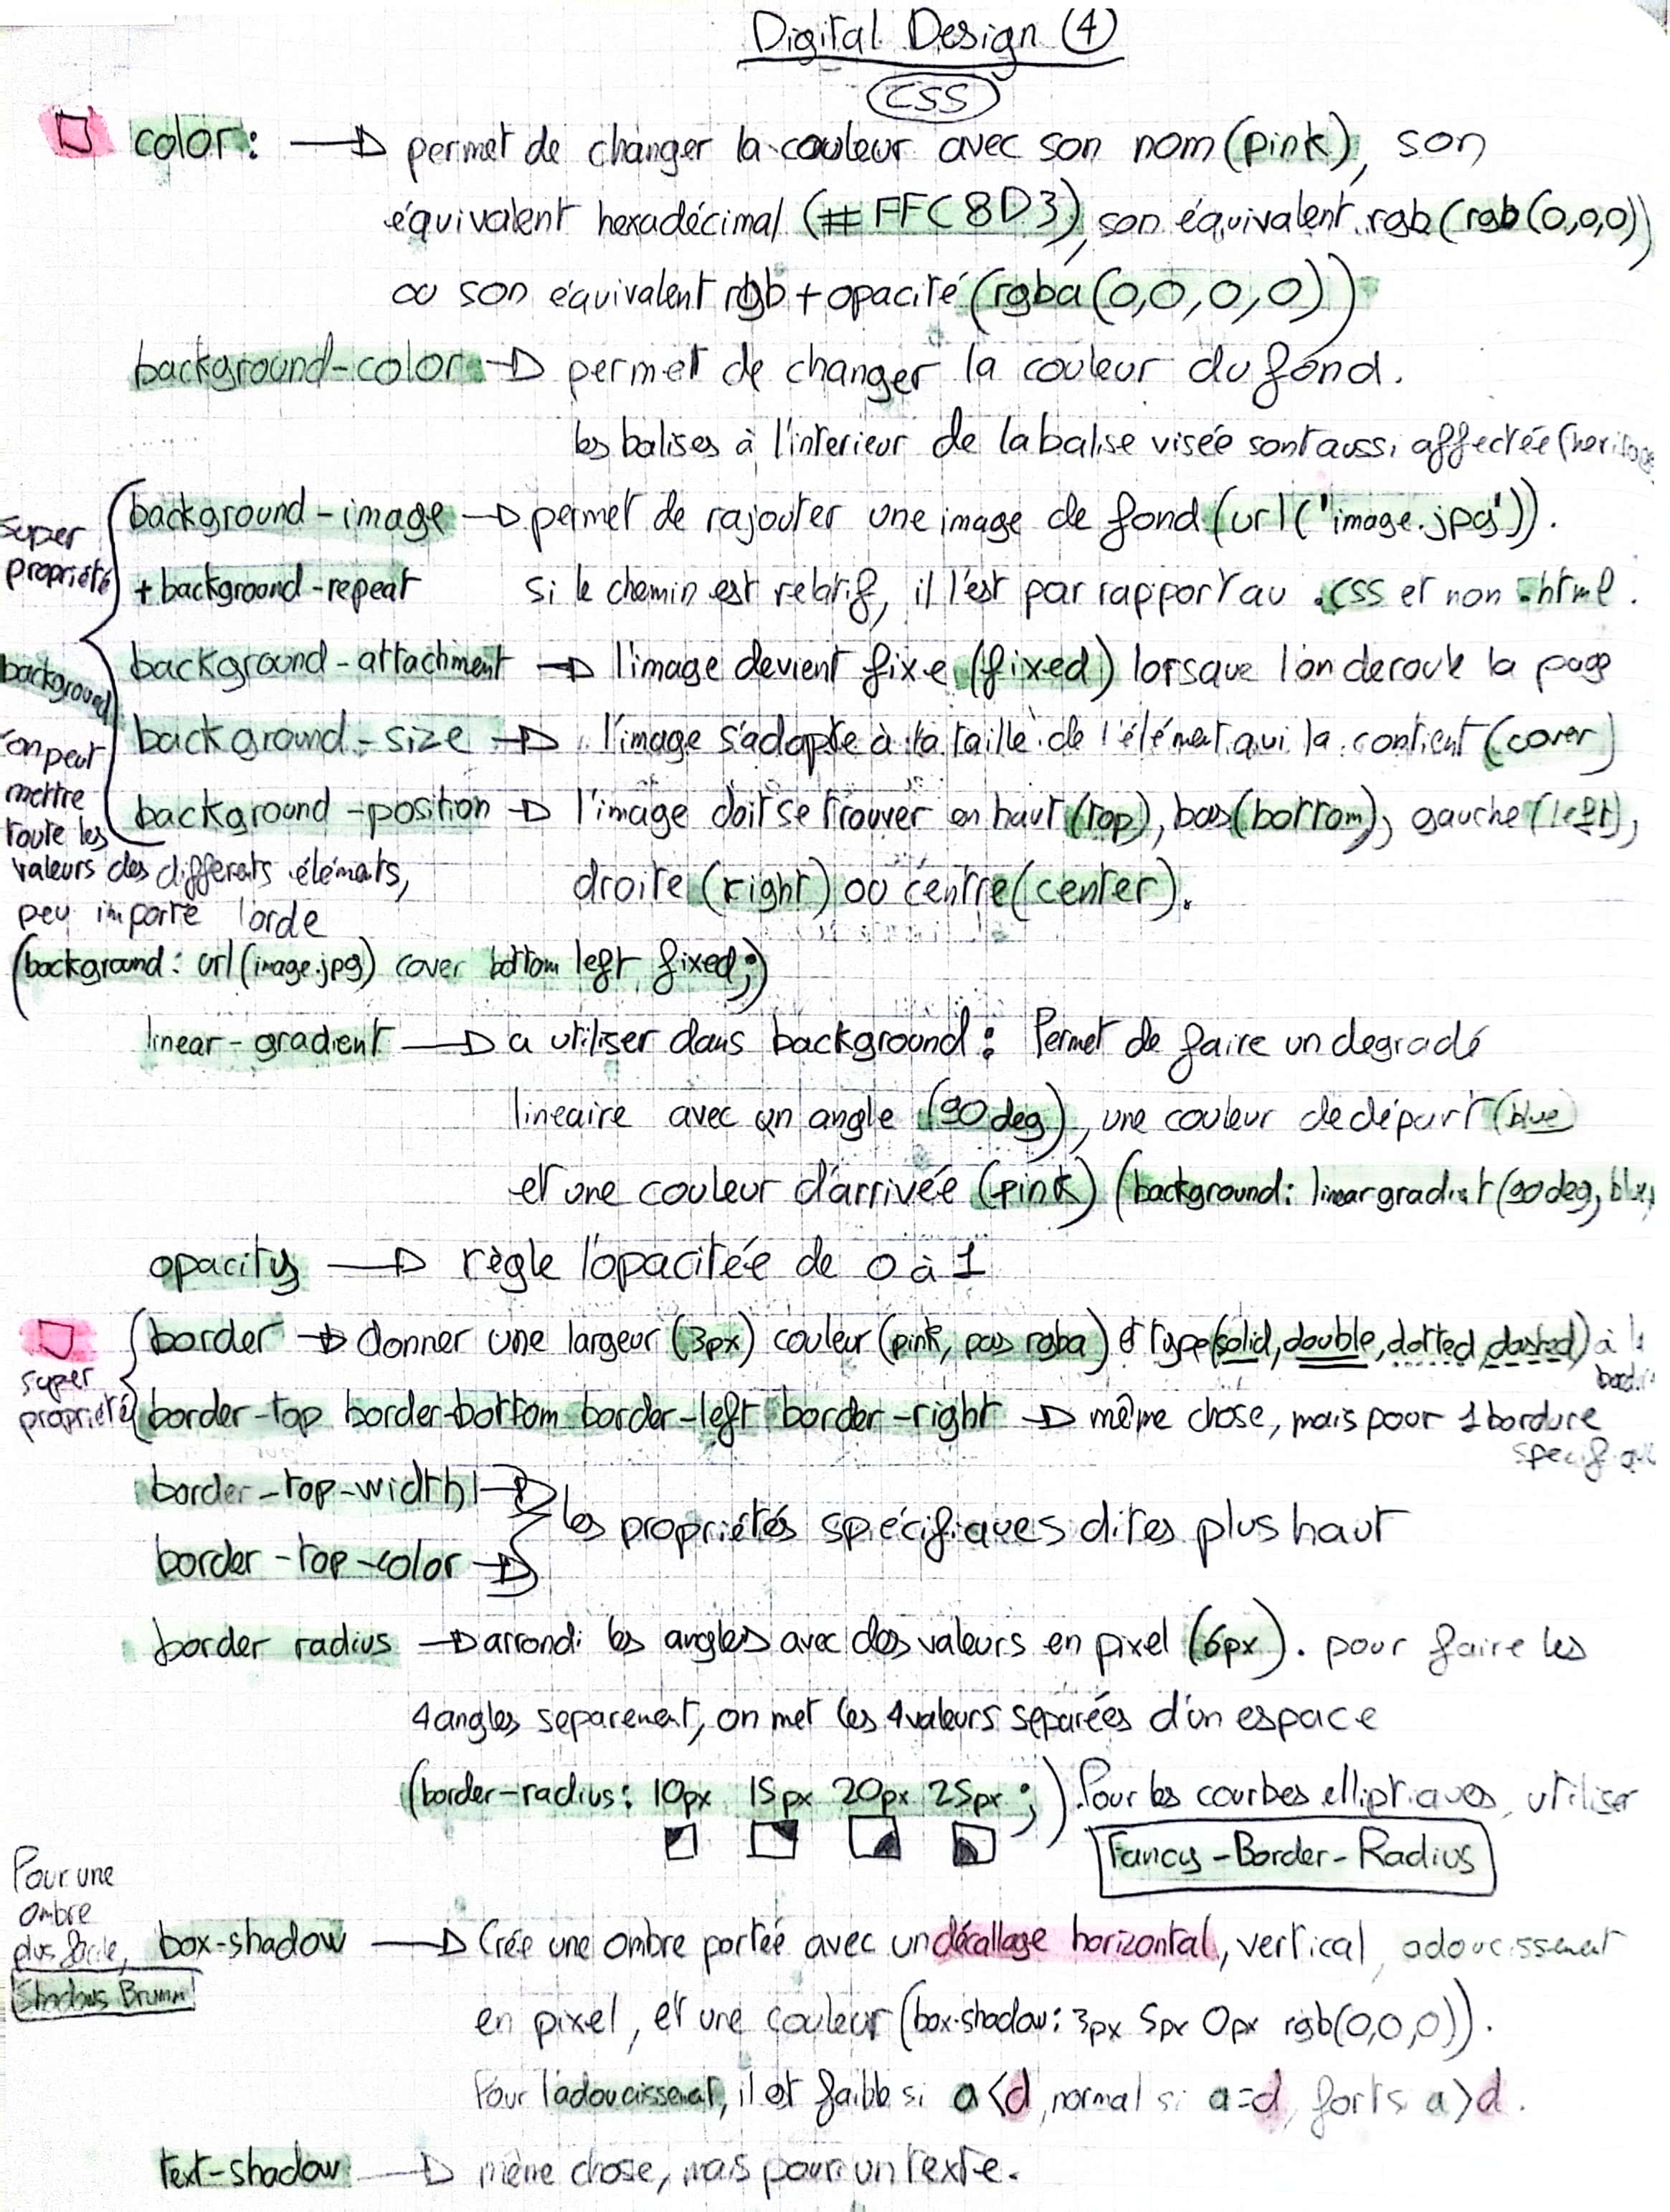 Digital Design (4)
CSS
color: → permet de changer la couleur avec son nom (pink), son
équivalent hexadécimal (#FFC8D3), son équivalent rgb (rgb(0,0,0))
ou son équivalent rgb + opacité (rgba(0,0,0,0))
background-color → permet de changer la couleur du fond.
les balises à l'interieur de la balise visée sont aussi affectée (heritage
background-image → permet de rajouter une image de fond (url('image.jpg')).
super
propriété
+ background-repeat si le chemin est relatif, il l'est par rapport au .css et non .html.
background-attachment → l'image devient fixe (fixed) lorsque l'on deroule la page
background
background-size → l'image s'adapte à la taille de l'élément qui la contient (cover)
on peut
mettre
toute les
valeurs des differents éléments,
peu importe l'orde
background-position → l'image doit se trouver en haut (top), bas (bottom), gauche (left),
droite (right) ou centre (center).
(background: url(image.jpg) cover bottom left fixed;)
linear-gradient → a utiliser dans background: Permet de faire un degradé
lineaire avec un angle (90deg), une couleur de départ (blue)
et une couleur d'arrivée (pink) (background: linear gradient (90deg, blue,
opacity → règle l'opacitée de 0 à 1
border → donner une largeur (3px) couleur (pink, pas rgba) et type (solid, double, dotted, dashed) à
super
propriété
border-top border-bottom border-left border-right → même chose, mais pour 1 bordure
specifique
border-top-width → les propriétés spécifiques dites plus haut
border-top-color →
border radius → arrondi les angles avec des valeurs en pixel (6px). pour faire les
4 angles separement, on met les 4 valeurs séparées d'un espace
(border-radius: 10px 15px 20px 25px;). Pour les courbes elliptiques, utiliser
Fancy-Border-Radius
Pour une
ombre
plus facile,
Shadows Brumm
box-shadow → Crée une ombre portée avec un décallage horizontal, vertical, adoucissement
en pixel, et une couleur (box-shadow: 3px 5px 0px rgb(0,0,0)).
Pour l'adoucissement, il est faible si a<d, normal si a=d, fort si a>d.
text-shadow → même chose, mais pour un texte.